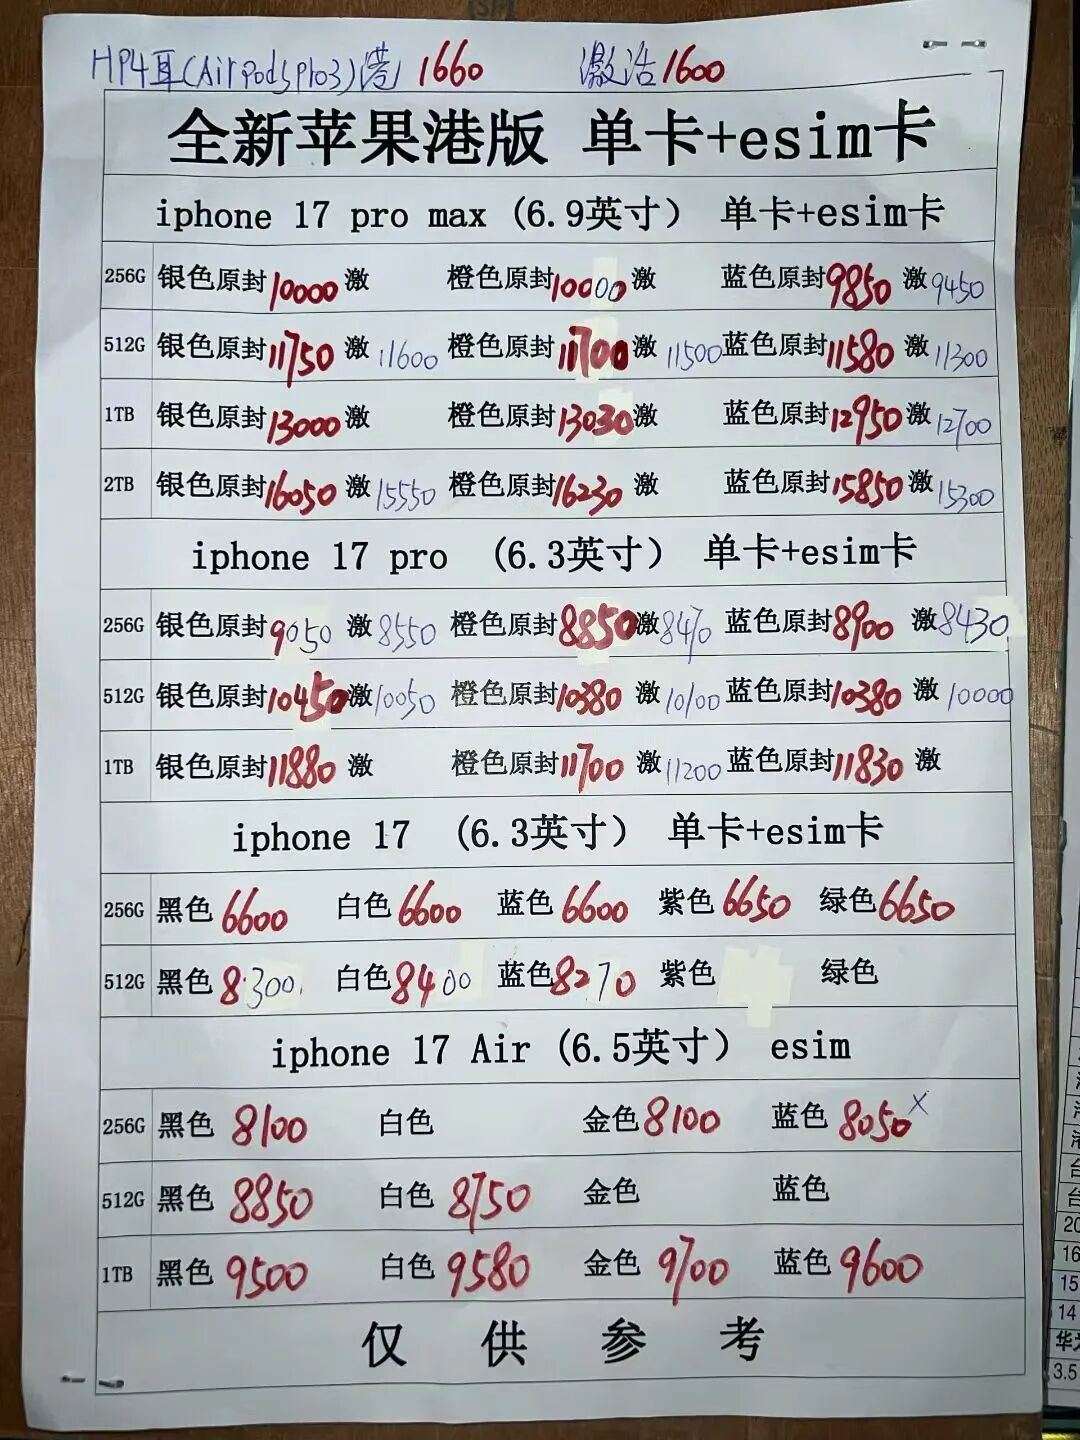 HP4耳(AirPods Pro3)港 1660 激活1600
全新苹果港版 单卡+esim卡
iphone 17 pro max (6.9英寸) 单卡+esim卡
256G 银色原封10000 激 橙色原封10000 激 蓝色原封9850 激 9450
512G 银色原封11750 激 11600 橙色原封11700 激 11500 蓝色原封11580 激 11300
1TB 银色原封13000 激 橙色原封13030 激 蓝色原封12950 激 12700
2TB 银色原封16050 激 15550 橙色原封16230 激 蓝色原封15850 激 15300
iphone 17 pro (6.3英寸) 单卡+esim卡
256G 银色原封9050 激 8550 橙色原封8850 激 8470 蓝色原封8900 激 8430
512G 银色原封10450 激 10050 橙色原封10380 激 10100 蓝色原封10380 激 10000
1TB 银色原封11880 激 橙色原封11700 激 11200 蓝色原封11830 激
iphone 17 (6.3英寸) 单卡+esim卡
256G 黑色 6600 白色 6600 蓝色 6600 紫色 6650 绿色 6650
512G 黑色 8300 白色 8400 蓝色 8270 紫色 绿色
iphone 17 Air (6.5英寸) esim
256G 黑色 8100 白色 金色 8100 蓝色 8050 x
512G 黑色 8850 白色 8750 金色 蓝色
1TB 黑色 9500 白色 9580 金色 9700 蓝色 9600
仅 供 参 考
台
台
20
16
15
14
华
3.5